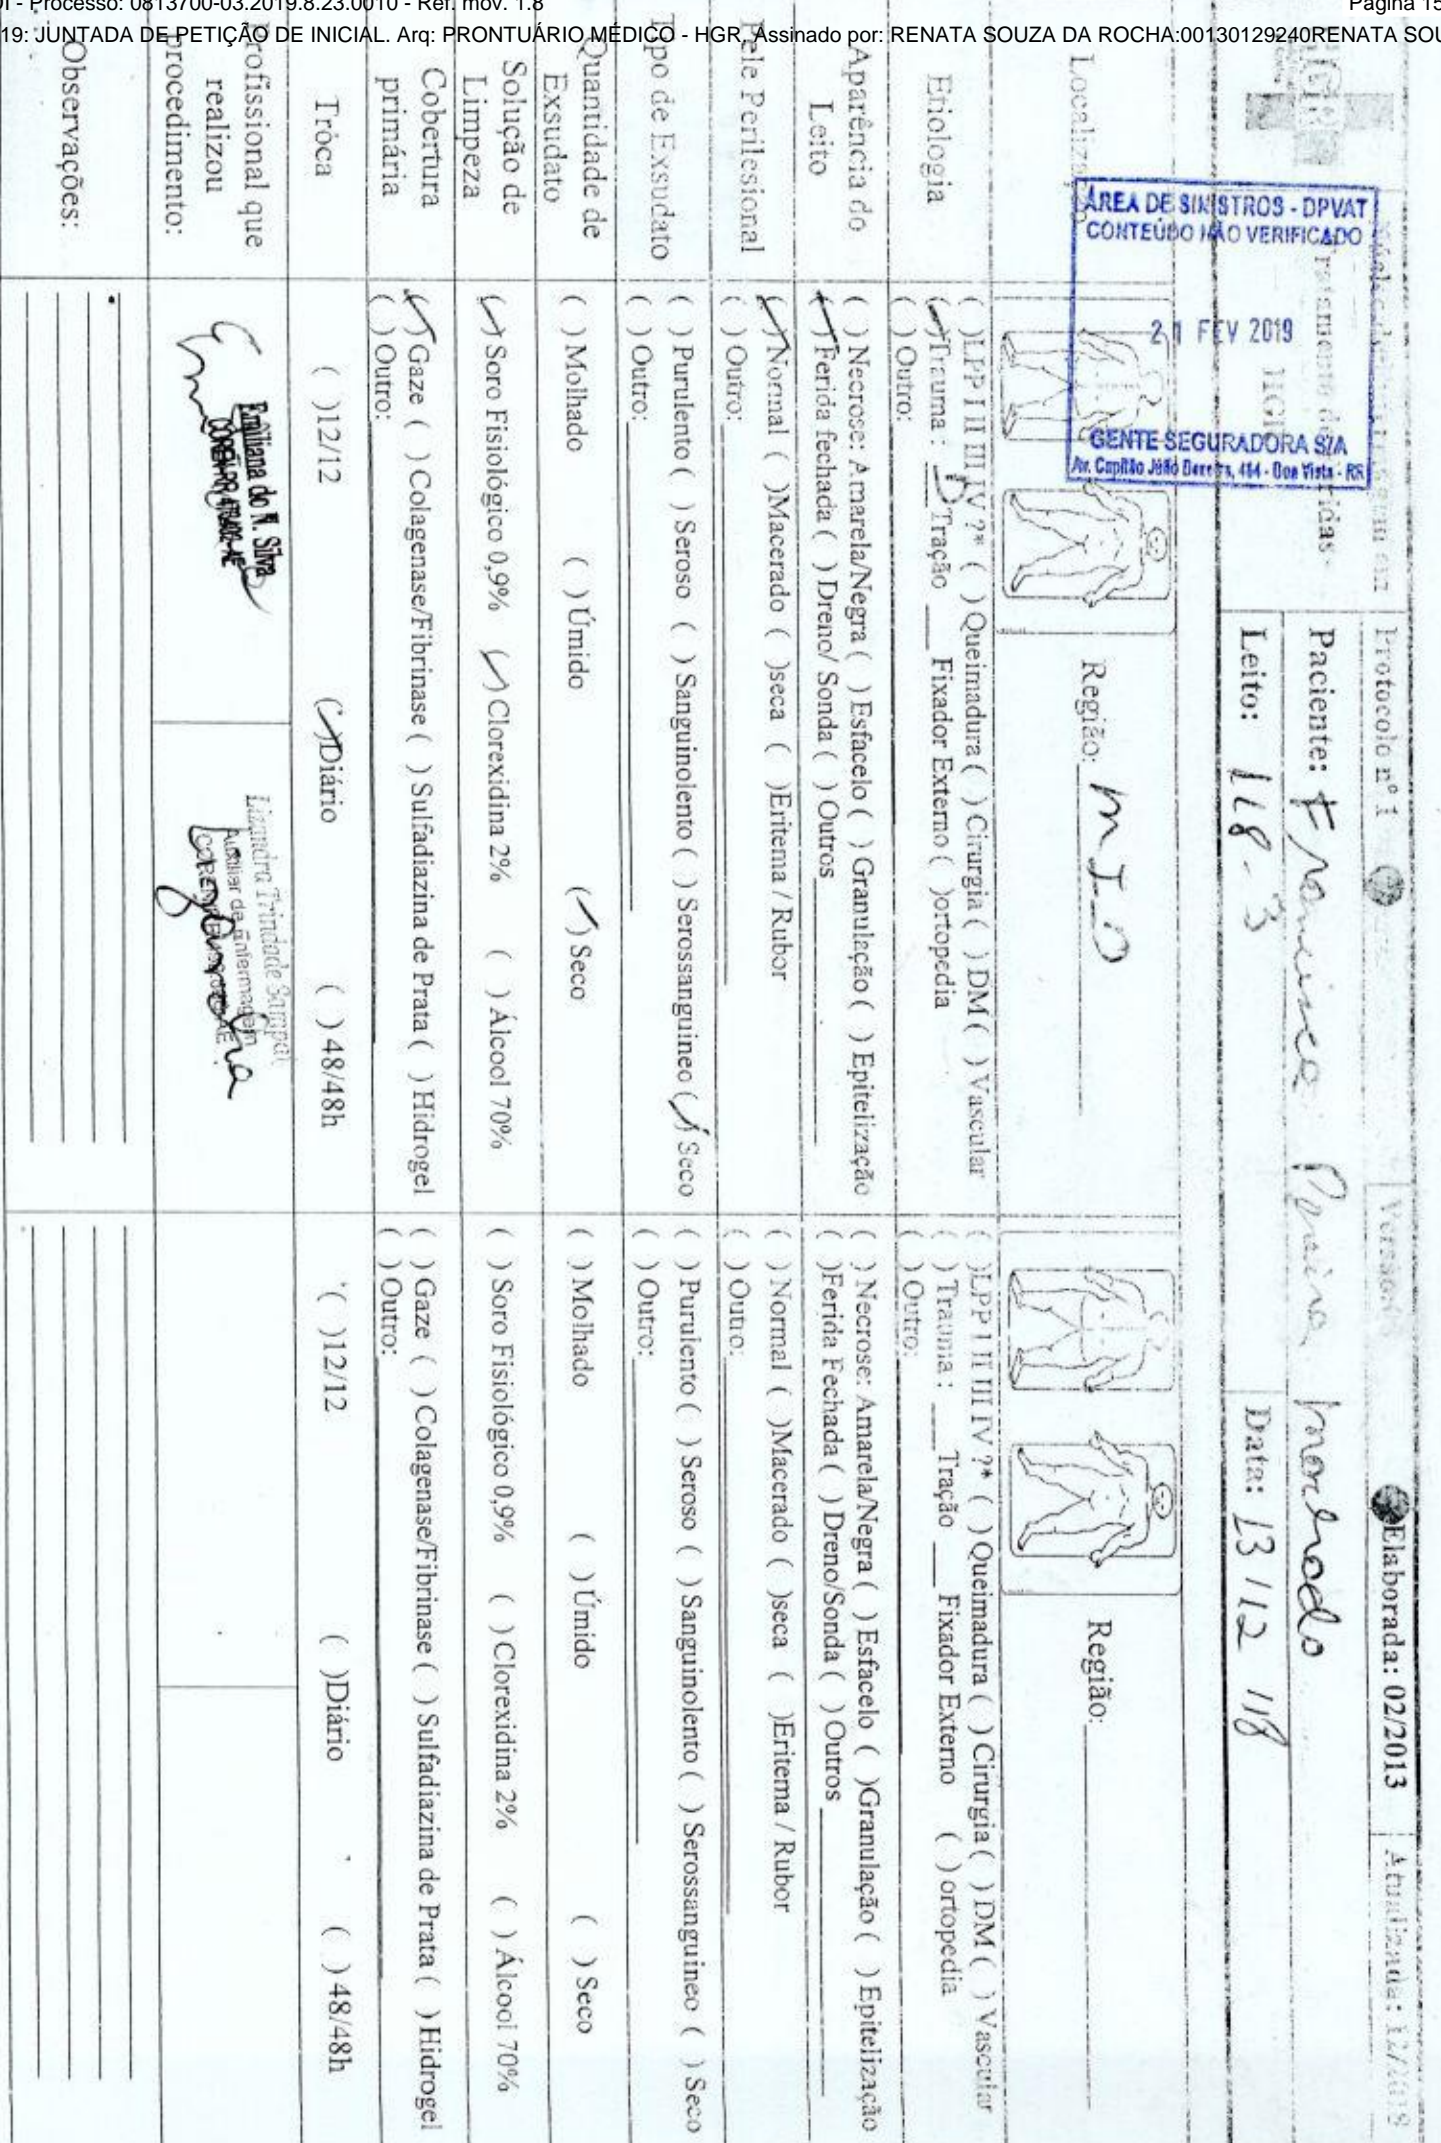 - Processo: 0813700-03.2019.8.23.0010 - Ref. mov. 1.8
Página 15
19: JUNTADA DE PETIÇÃO DE INICIAL. Arq: PRONTUÁRIO MÉDICO - HGR, Assinado por: RENATA SOUZA DA ROCHA:00130129240RENATA SOU
Protocolo nº 1
Elaborada: 02/2013
Atualizada: 12/2018
Paciente: Francisco Pereira Machado
Leito: 118-3
Data: 13/12/18
ÁREA DE SINISTROS - DPVAT
CONTEÚDO NÃO VERIFICADO
21 FEV 2019
GENTE SEGURADORA S/A
Boa Vista - RR
Região: MID
Região:
Etiologia
( )LPP I II III IV ?* ( )Queimadura ( )Cirurgia ( )DM ( )Vascular
(✓)Trauma: Tração ___ Fixador Externo ( )ortopedia
( )Outro:
( )LPP I II III IV ?* ( )Queimadura ( )Cirurgia ( )DM ( )Vascular
( )Trauma: ___ Tração ___ Fixador Externo ( )ortopedia
( )Outro:
Aparência do
Leito
( )Necrose: Amarela/Negra ( )Esfacelo ( )Granulação ( )Epitelização
(✓)Ferida fechada ( )Dreno/ Sonda ( )Outros
( )Necrose: Amarela/Negra ( )Esfacelo ( )Granulação ( )Epitelização
( )Ferida Fechada ( )Dreno/Sonda ( )Outros
Pele Perilesional
(✓)Normal ( )Macerado ( )seca ( )Eritema / Rubor
( )Outro:
( )Normal ( )Macerado ( )seca ( )Eritema / Rubor
( )Outro:
Tipo de Exsudato
( )Purulento ( )Seroso ( )Sanguinolento ( )Serossanguineo (✓)Seco
( )Outro:
( )Purulento ( )Seroso ( )Sanguinolento ( )Serossanguineo ( )Seco
( )Outro:
Quantidade de
Exsudato
( )Molhado ( )Úmido (✓)Seco
( )Molhado ( )Úmido ( )Seco
Solução de
Limpeza
(✓)Soro Fisiológico 0,9% (✓)Clorexidina 2% ( )Álcool 70%
( )Soro Fisiológico 0,9% ( )Clorexidina 2% ( )Álcool 70%
Cobertura
primária
(✓)Gaze ( )Colagenase/Fibrinase ( )Sulfadiazina de Prata ( )Hidrogel
( )Outro:
( )Gaze ( )Colagenase/Fibrinase ( )Sulfadiazina de Prata ( )Hidrogel
( )Outro:
Troca
( )12/12 (✓)Diário ( )48/48h
( )12/12 ( )Diário ( )48/48h
Profissional que
realizou
procedimento:
Emiliana do N. Silva
Lizandra Trindade Sampaio
Auxiliar de Enfermagem
Observações: